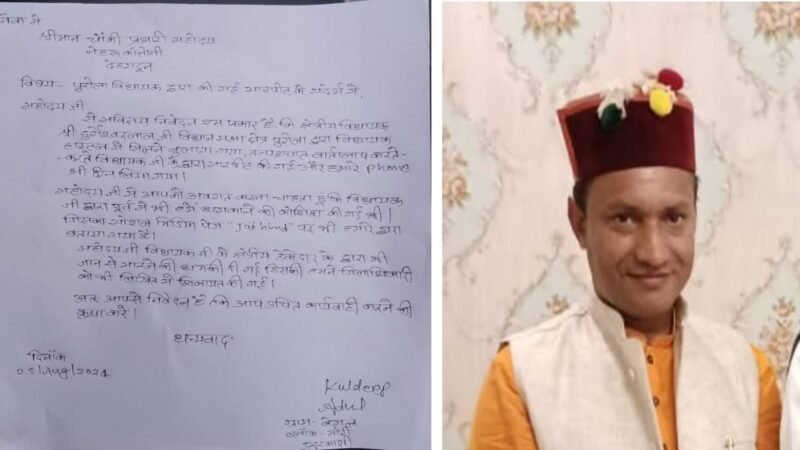 सेवा में
श्रीमान चौंकी प्रभारी महोदय
नेहरू कॉलोनी
देहरादून
विषय - पुरोला विधायक द्वारा की गई मारपीट के संदर्भ में,
महोदय जी
में सविनय निवेदन इस प्रकार है, कि क्षेत्रीय विधायक
श्री दुर्गेश्वरलाल जी विधान सभा क्षेत्र पुरोला द्वारा विधायक
हास्टल में मिलने बुलाया गया, तत्पश्चात वार्तालाप करते-
करते विधायक जी के द्वारा मारपीट की गई और हमारे phone
भी छीन लिया गया।
महोदय जी में आपको अवगत कराना चाहता हूं कि विधायक
जी द्वारा पूर्व में भी हमें की कोशिश की गई थी।
जिसका सोशल मिडिया पेज "Jai hind" पर भी हमारे द्वारा
बताया गया है।
महोदय जी विधायक जी के क्षेत्रीय ठेकेदार के द्वारा भी
जान से मारने की धमकी दी गई जिसकी हमने जिलाधिकारी
को भी लिखित में शिकायत की गई।
अतः आपसे निवेदन है कि आप उचित कार्यवाही करने की
कृपा करें।
धन्यवाद
दिनाँक
23/Aug/2024
Kuldeep
ग्राम-
ब्लॉक- मोरी
उत्तरकाशी